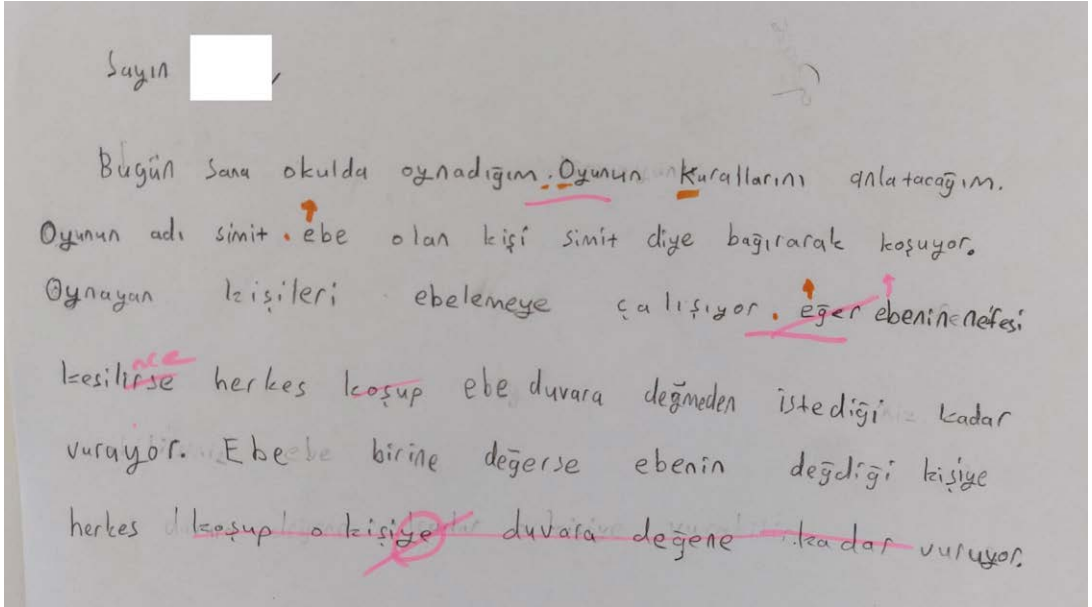 Sayın ,
Bugün Sana okulda oynadığım. Oyunun Kurallarını anlatacağım.
Oyunun adı simit. ebe olan kişi simit diye bağırarak koşuyor.
Oynayan kişileri ebelemeye çalışıyor. eğer ebenin nefesi
nce
kesilirse herkes koşup ebe duvara değmeden istediği kadar
vuruyor. Ebe birine değerse ebenin değdiği kişiye
herkes koşup o kişiye duvara değene kadar vuruyor.